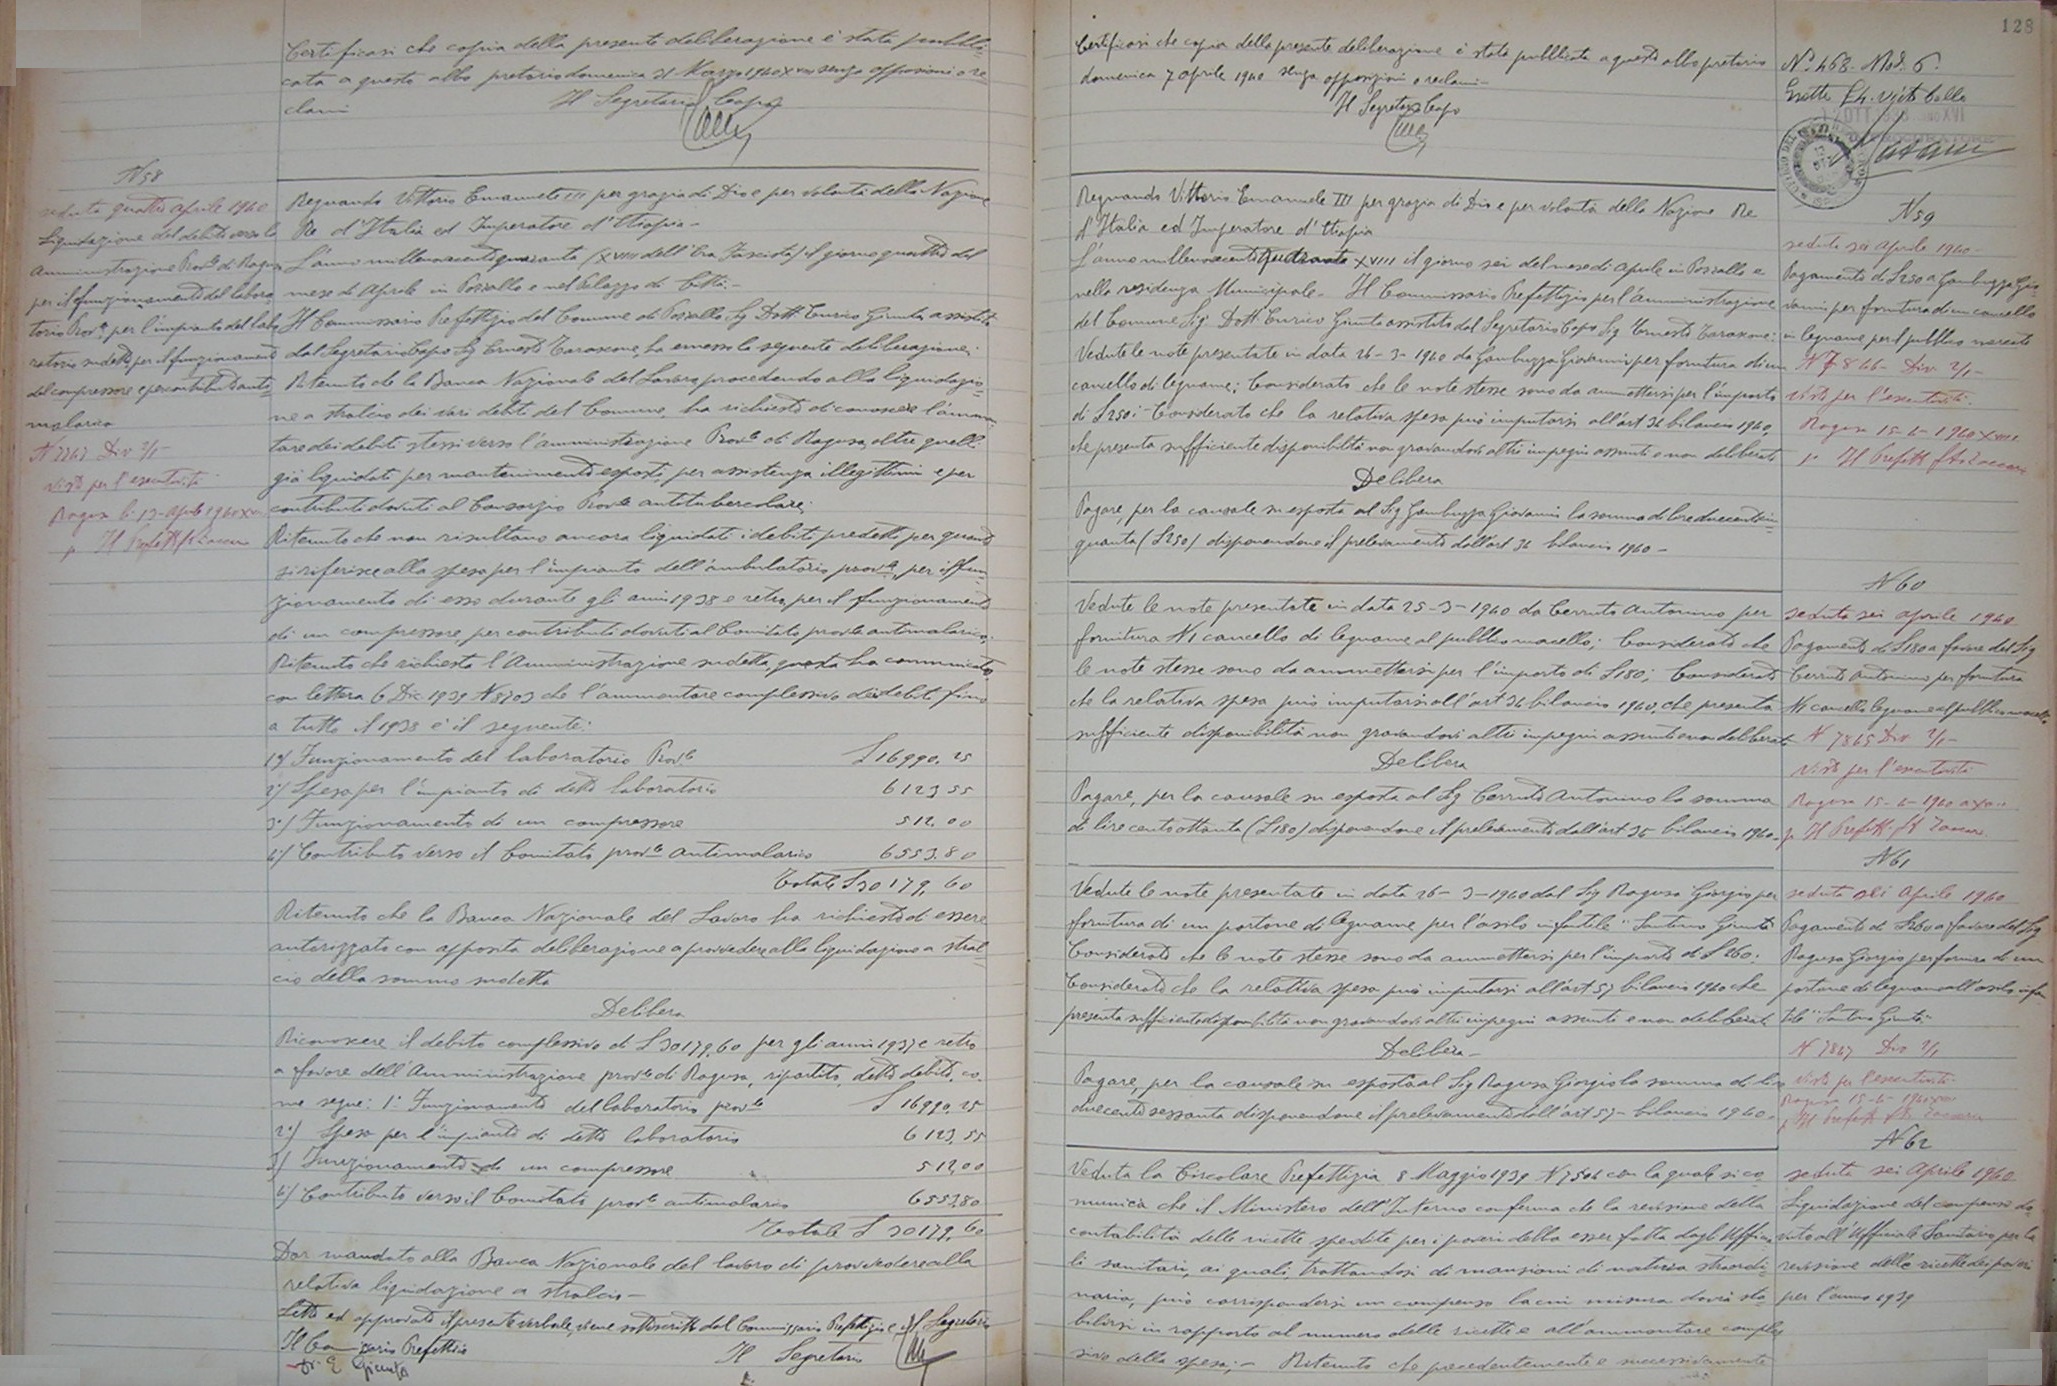 Certificasi che copia della presente deliberazione è stata pubbli-
cata a questo albo pretorio domenica 31 Marzo 1940 XVIII senza opposizioni o re
clami
Il Segretario Capo
N 58
seduta quattro aprile 1940
Liquidazione del debito verso la
Amministrazione Prov.le di Ragusa
per il funzionamento del labora-
torio Prov.le per l'impianto del labo
ratorio sudetto, per il funzionamento
del compressore e per contributi anti-
malarico
N 7767 Div 2/1
Visto per l'esecutorietà
Ragusa li 13 aprile 1940 XVIII
p. Il Prefetto
Regnando Vittorio Emanuele III per grazia di Dio e per volontà della Nazione
Re d'Italia ed Imperatore d'Etiopia -
L'anno millenovecentoquaranta (XVIII dell'Era Fascista) il giorno quattro del
mese di Aprile in Pozzallo e nel Palazzo di Città. -
Il Commissario Prefettizio del Comune di Pozzallo Sig Dott Enrico Giunta assistito
dal Segretario Capo Sig Ernesto Tarascone, ha emesso la seguente deliberazione:
Ritenuto che la Banca Nazionale del Lavoro procedendo alla liquidazio-
ne a stralcio dei vari debiti del Comune, ha richiesto di conoscere l'ammon-
tare dei debiti stessi verso l'amministrazione Prov.le di Ragusa, oltre quelli
già liquidati per mantenimento esposti, per assistenza illegittimi e per
contributi dovuti al Consorzio Prov.le antitubercolare;
Ritenuto che non risultano ancora liquidati i debiti predetti per quanto
si riferisce alla spesa per l'impianto dell'ambulatorio prov.le, per il fun-
zionamento di esso durante gli anni 1938 e retro, per il funzionamento
di un compressore, per contributi dovuti al Comitato prov.le antimalarico;
Ritenuto che richiesta l'Amministrazione sudetta, questa ha comunicato
con lettera 6 Dic 1939 N 8703 che l'ammontare complessivo dei debiti fino
a tutto il 1938 è il seguente:
1°) Funzionamento del laboratorio Prov.le L 16990,25
2°) Spesa per l'impianto di detto laboratorio 6123 55
3°) Funzionamento di un compressore 512.00
4°) Contributo verso il Comitato prov.le antimalarico 6553.80
Totale L 30179,60
Ritenuto che la Banca Nazionale del Lavoro ha richiesto di essere
autorizzata con apposita deliberazione a provvedere alla liquidazione a stral
cio della somma sudetta
Delibera
Riconoscere il debito complessivo di L 30179,60 per gli anni 1937 e retro
a favore dell'Amministrazione prov.le di Ragusa, ripartito, detto debito, co-
me segue: 1° Funzionamento del laboratorio prov.le L 16990,25
2°) Spesa per l'impianto di detto laboratorio 6123,55
3°) Funzionamento di un compressore 512,00
4°) Contributo verso il Comitato prov.le antimalarico 6553,80
Totale L 30179,60
Dar mandato alla Banca Nazionale del lavoro di provvedere alla
relativa liquidazione a stralcio -
Letto ed approvato il presente verbale, viene sottoscritto dal Commissario Prefettizio e il Segretario
Il Commissario Prefettizio Il Segretario
Dr. E Giunta
128
Certificasi che copia della presente deliberazione è stata pubblicata a questo albo pretorio
domenica 7 aprile 1940 senza opposizioni o reclami -
Il Segretario Capo
N° 468 - Mod. 6.
Esatte L 4. visto bollo
17 OTT 1938 ANNO XVI
Regnando Vittorio Emanuele III per grazia di Dio e per volontà della Nazione Re
d'Italia ed Imperatore d'Etiopia
L'anno millenovecentoquaranta XVIII il giorno sei del mese di aprile in Pozzallo e
nella residenza Municipale. Il Commissario Prefettizio per l'amministrazione
del Comune Sig. Dott. Enrico Giunta assistito dal Segretario Capo Sig Ernesto Tarascone:
Vedute le note presentate in data 26-3-1940 da Gambuzza Giovanni per fornitura di un
cancello di legname; Considerato che le note stesse sono da ammettersi per l'importo
di L 250; Considerato che la relativa spesa può imputarsi all'art 36 bilancio 1940,
che presenta sufficiente disponibilità non gravandovi altri impegni assunti e non deliberati
Delibera
Pagare, per la causale su esposta al Sig Gambuzza Giovanni la somma di lire duecentocin-
quanta (L 250) disponendone il prelevamento dall'art 36 bilancio 1940 -
N 59
seduta sei aprile 1940
Pagamento di L 250 a Gambuzza Gio-
vanni per fornitura di un cancello
in legname per il pubblico mercato
N 7866 - Div 2/1 -
Visto per l'esecutorietà.
Ragusa 15-4-1940 XVIII
p. Il Prefetto
Vedute le note presentate in data 25-3-1940 da Cerruto Antonino per
fornitura N 1 cancello di legname al pubblico macello; Considerato che
le note stesse sono da ammettersi per l'importo di L 180; Considerato
che la relativa spesa può imputarsi all'art 36 bilancio 1940, che presenta
sufficiente disponibilità non gravandovi altri impegni assunti e non deliberati
Delibera
Pagare, per la causale su esposta al Sig Cerruto Antonino la somma
di lire cento ottanta (L 180) disponendone il prelevamento dall'art 36 bilancio 1940 -
N 60
seduta sei aprile 1940
Pagamento di L 180 a favore del Sig
Cerruto Antonino per fornitura
N 1 cancello legname al pubblico macello
N 7865 Div 2/1 -
Visto per l'esecutorietà
Ragusa 15-4-1940
p. Il Prefetto
Vedute le note presentate in data 26-3-1940 dal Sig Ragusa Giorgio per
fornitura di un portone di legname per l'asilo infantile "Santina Giunta"
Considerato che le note stesse sono da ammettersi per l'importo di L 260:
Considerato che la relativa spesa può imputarsi all'art 57 bilancio 1940 che
presenta sufficiente disponibilità non gravandovi altri impegni assunti e non deliberati
Delibera -
Pagare, per la causale su esposta al Sig Ragusa Giorgio la somma di lire
duecento sessanta disponendone il prelevamento dall'art 57 - bilancio 1940.
N 61
seduta sei aprile 1940
Pagamento di L 260 a favore del Sig
Ragusa Giorgio per fornitura di un
portone di legname all'asilo infan
tile "Santina Giunta"
N 7867 Div 2/1
Visto per l'esecutorietà
Ragusa 15-4-1940 XVIII
p Il Prefetto
Veduta la Circolare Prefettizia 8 Maggio 1939 N 7506 con la quale si co-
munica che il Ministero dell'Interno conferma che la revisione della
contabilità delle ricette spedite per i poveri debba esser fatta dagli Ufficia-
li sanitari, ai quali, trattandosi di mansioni di natura straordi-
naria, può corrispondersi un compenso la cui misura dovrà sta-
bilirsi in rapporto al numero delle ricette e all'ammontare comples
sivo della spesa; - Ritenuto che precedentemente e successivamente
N 62
seduta sei aprile 1940
Liquidazione del compenso do-
vuto all'Ufficiale Sanitario per la
revisione delle ricette dei poveri
per l'anno 1939